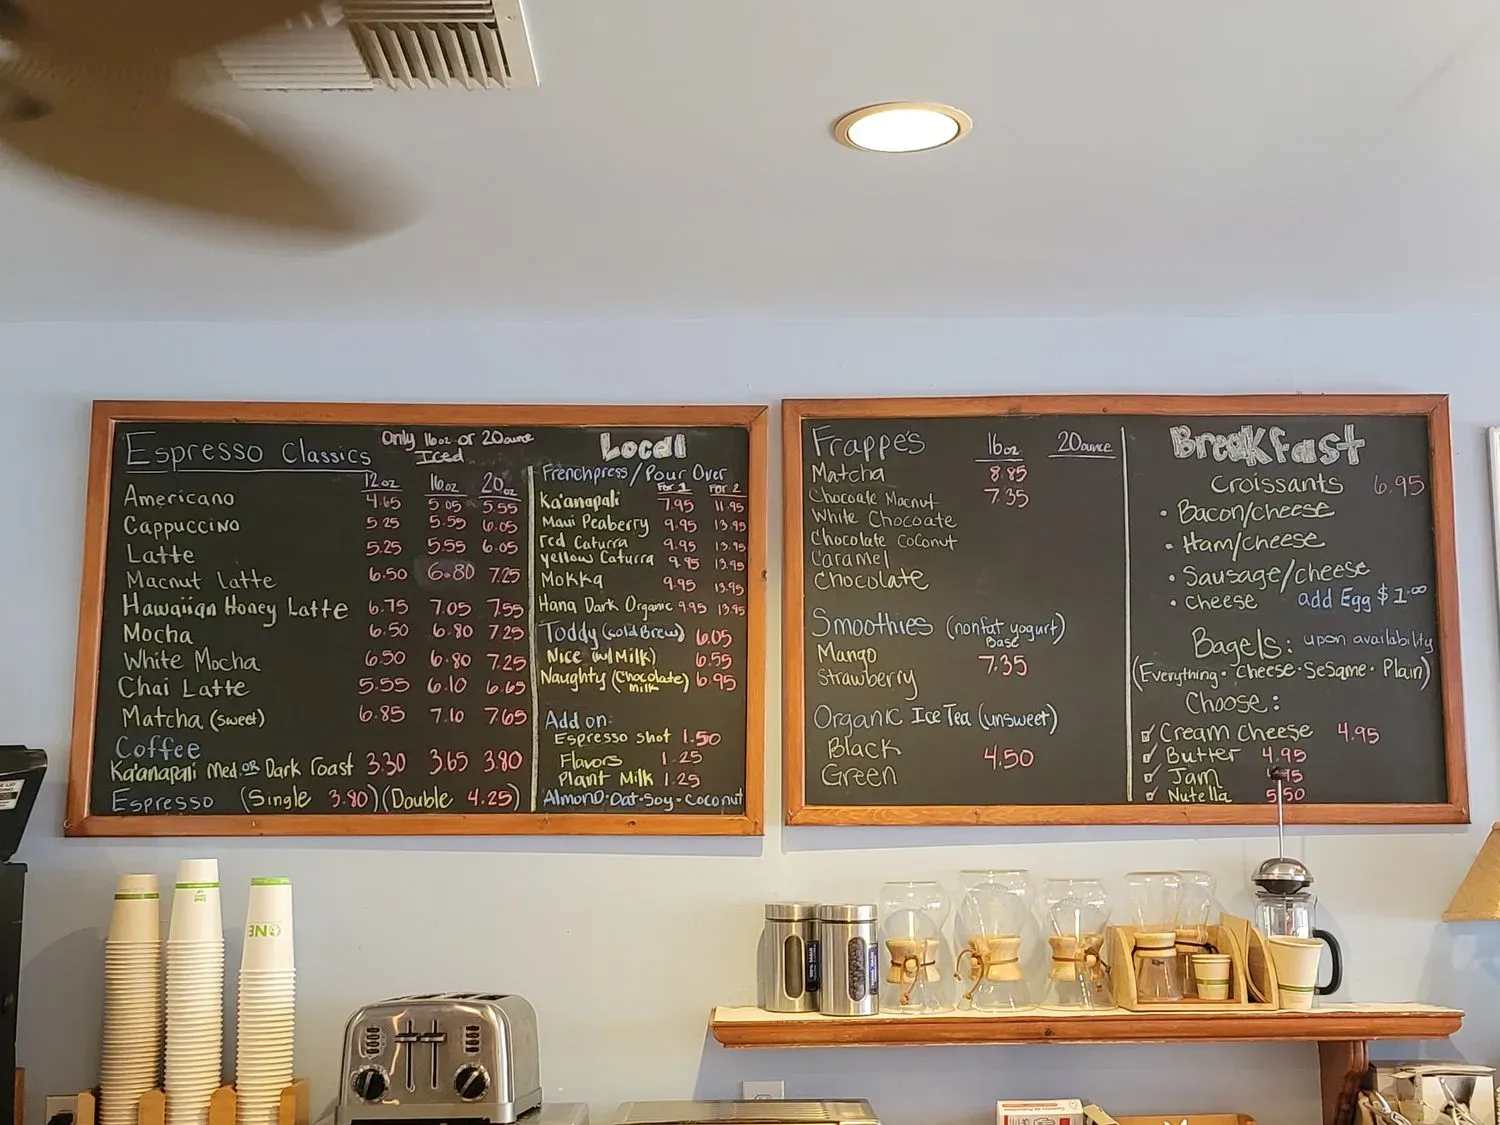 Espresso Classics
Only 16oz or 20ounce
Iced
12oz 16oz 20oz
Americano 4.65 5.05 5.55
Cappuccino 5.25 5.55 6.05
Latte 5.25 5.55 6.05
Macnut Latte 6.50 6.80 7.25
Hawaiian Honey Latte 6.75 7.05 7.55
Mocha 6.50 6.80 7.25
White Mocha 6.50 6.80 7.25
Chai Latte 5.55 6.10 6.65
Matcha (sweet) 6.85 7.10 7.65
Coffee
Ka'anapali med. or Dark roast 3.30 3.65 3.80
Espresso (Single 3.80) (Double 4.25)
Local
Frenchpress/Pour Over
For 1 For 2
Ka'anapali 7.95 11.95
Maui Peaberry 9.95 13.95
red Caturra 9.95 13.95
yellow Caturra 9.95 13.95
Mokka 9.95 13.95
Hana Dark Organic 9.95 13.95
Toddy (cold Brew) 6.05
Nice (w/ Milk) 6.55
Naughty (Chocolate Milk) 6.95
Add on:
Espresso shot 1.50
Flavors 1.25
Plant Milk 1.25
Almond·Oat·Soy·Coconut
Frappe's 16oz 20ounce
Matcha 8.85
Chocoate Macnut 7.35
White Chocoate
Chocolate coconut
Caramel
Chocolate
Smoothies (nonfat yogurt)
Base
Mango 7.35
Strawberry
Organic Ice Tea (unsweet)
Black 4.50
Green
Breakfast
Croissants 6.95
• Bacon/cheese
• Ham/cheese
• Sausage/cheese
• cheese add Egg $1.00
Bagels: upon availability
(Everything· Cheese·Sesame· Plain)
Choose:
Cream Cheese 4.95
Butter 4.95
Jam
Nutella 5.50
ONE